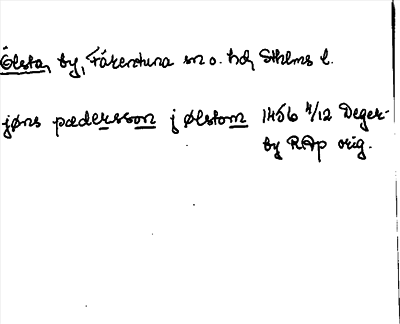 Ölsta, by, Fäkerstuna sn o. hd, Sthlms l.
jøns pædersson j ølstom 1456 4/12 Deger-
by RAp orig.